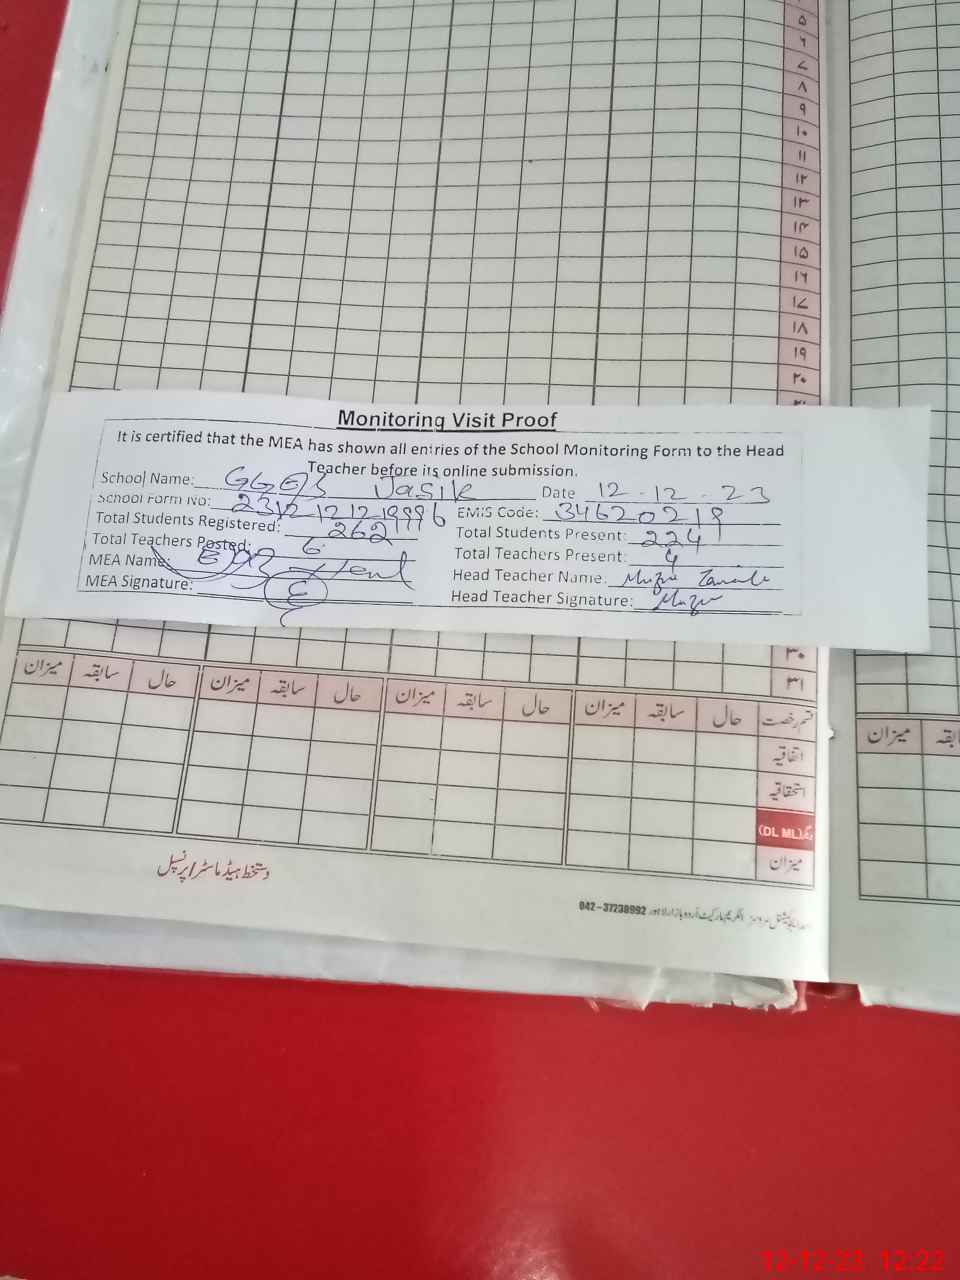 ۵
۶
۷
۸
۹
۱۰
۱۱
۱۲
۱۳
۱۴
۱۵
۱۶
۱۷
۱۸
۱۹
۲۰
Monitoring Visit Proof
It is certified that the MEA has shown all entries of the School Monitoring Form to the Head
Teacher before its online submission.
School Name: GGES Jasik Date 12-12-23
School Form No: EMIS Code: 34620219
Total Students Registered: 262 Total Students Present: 224
Total Teachers Posted: 6 Total Teachers Present: 4
MEA Name: Head Teacher Name:
MEA Signature: Head Teacher Signature:
۳۰
۳۱
قسم رخصت حال سابقہ میزان حال سابقہ میزان حال سابقہ میزان حال سابقہ میزان
اتفاقیہ
استحقاقیہ
(DL ML)
میزان
سابقہ میزان
دستخط ہیڈماسٹر/پرنسپل
اردو بازار لاہور 042-37238992
12-12-23 12:22